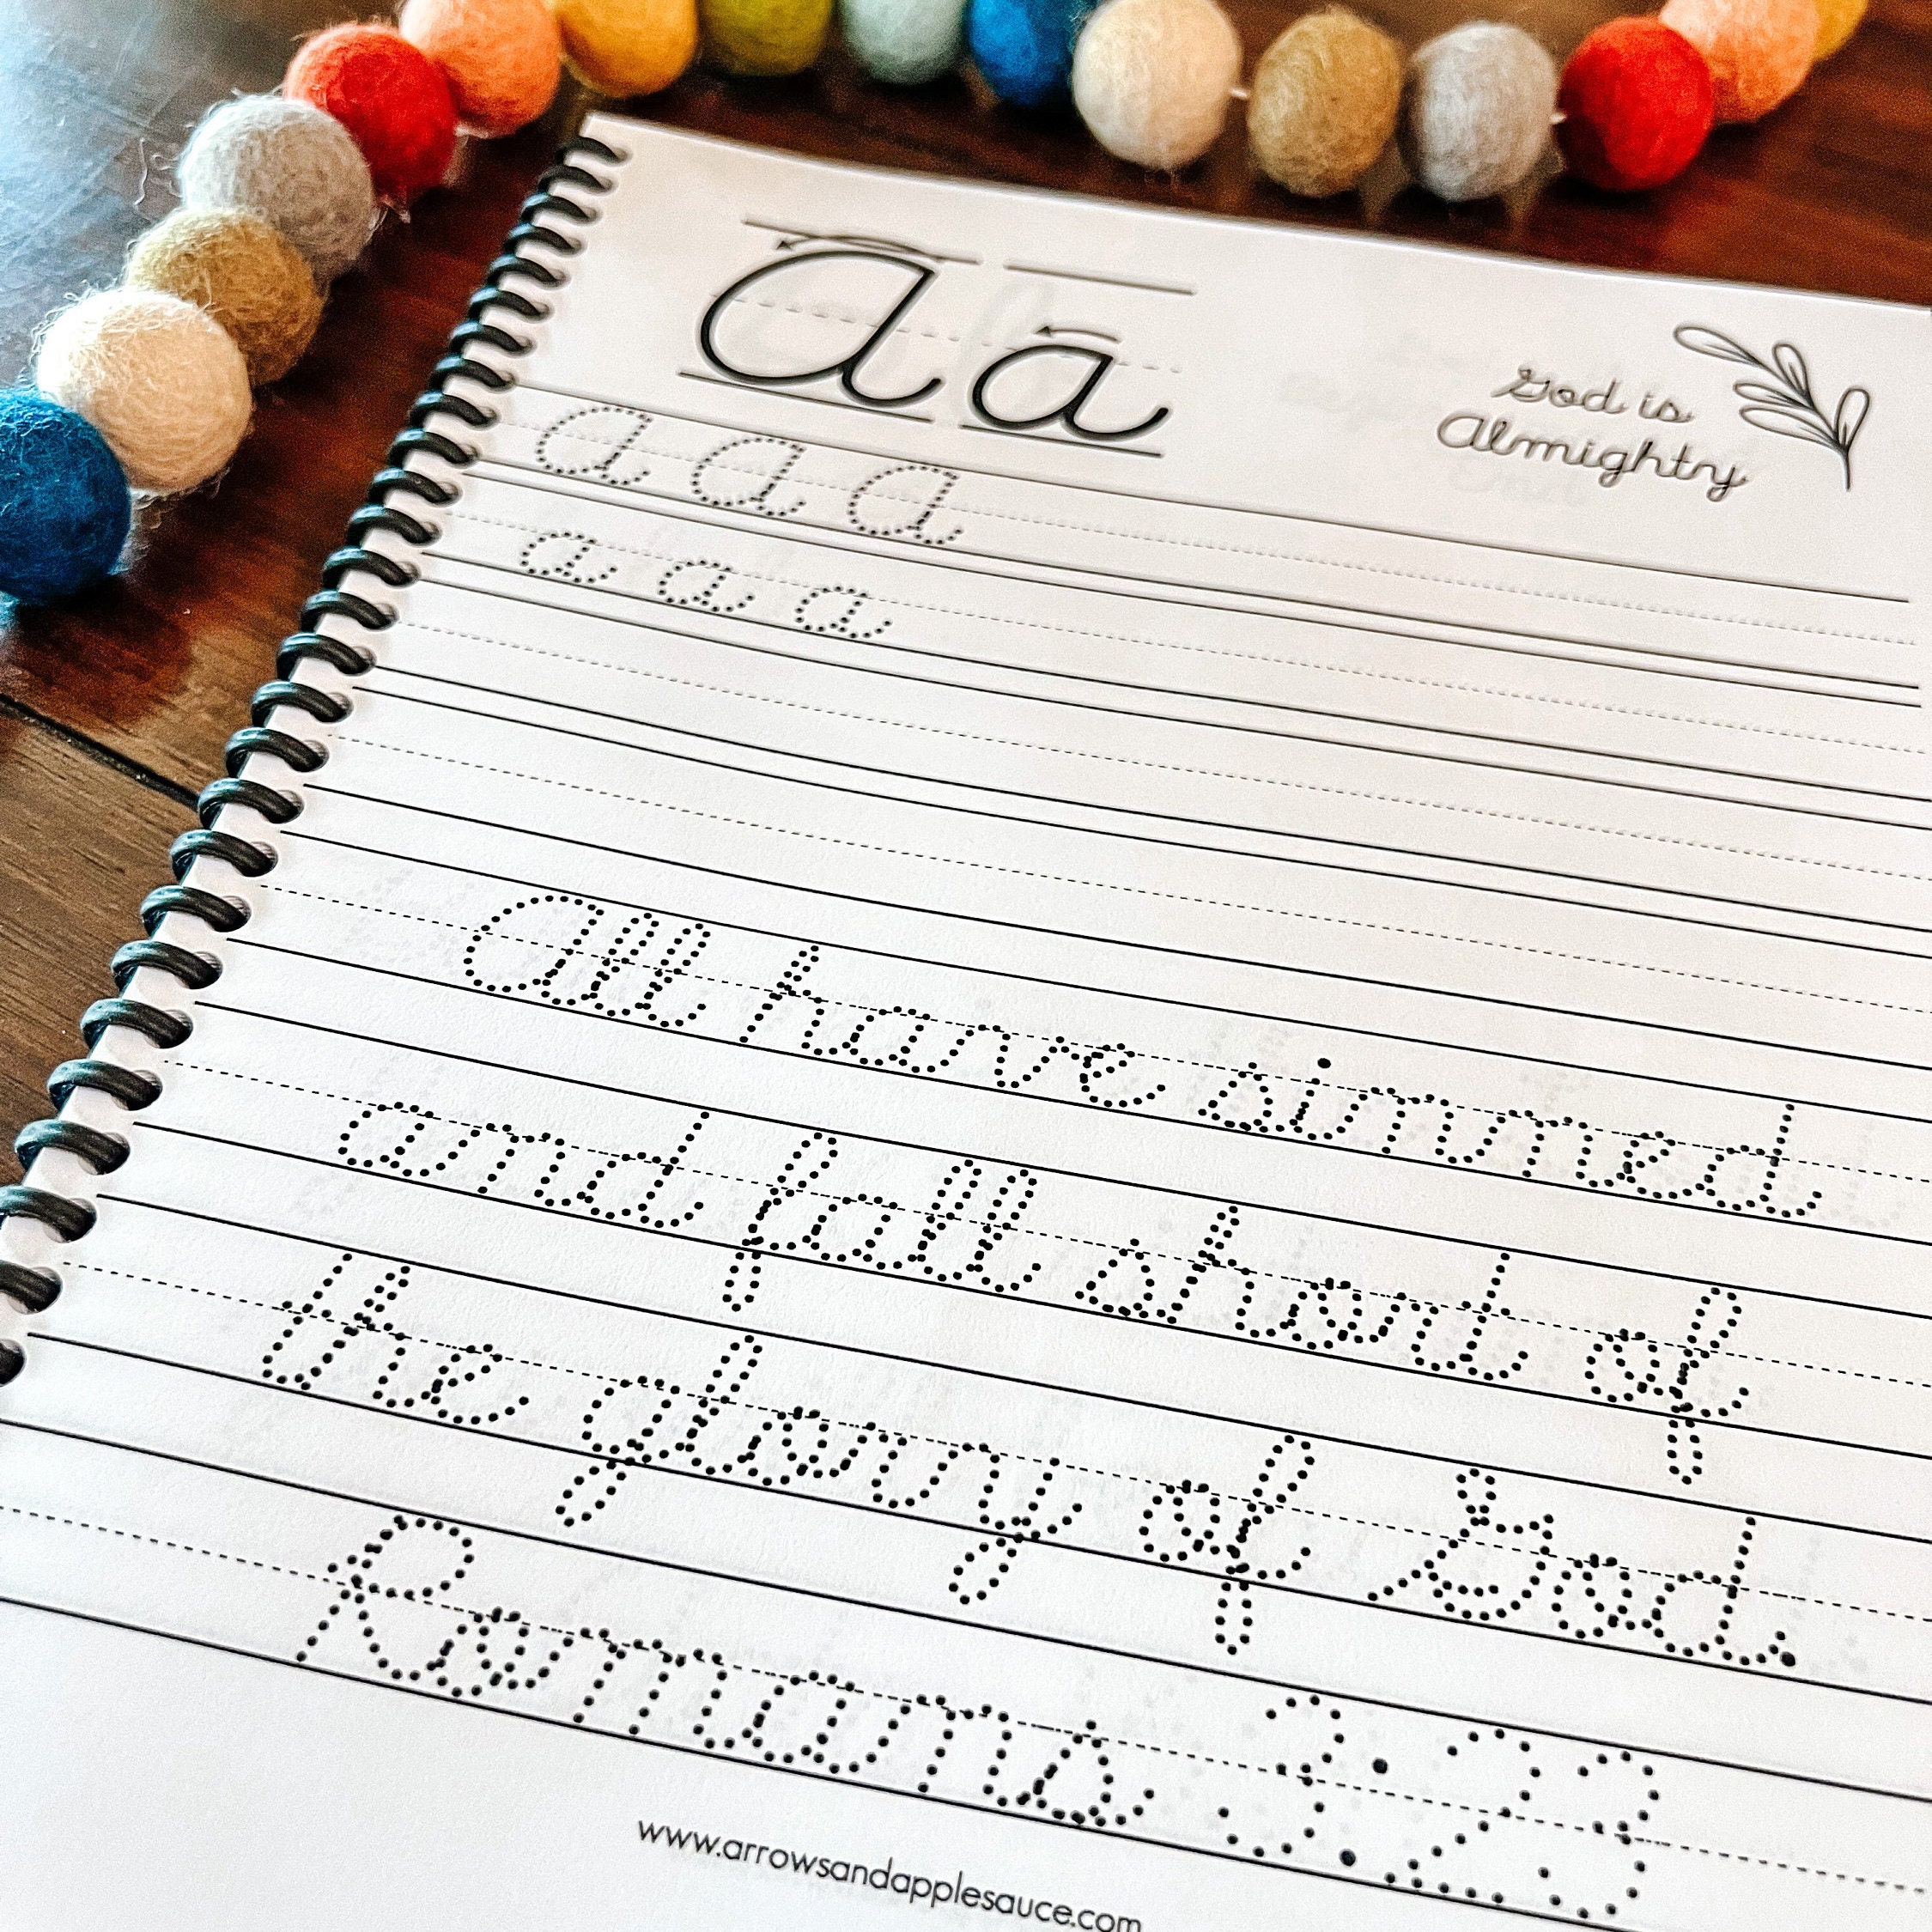 A a
God is
Almighty
A A A
a a a
All have sinned
and fall short of
the glory of God.
Romans 3:23
www.arrowsandapplesauce.com